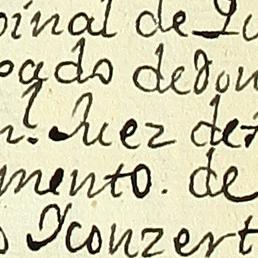 pinal de Qu
pado de don
n.l Juez de
mento. de
Yconzert